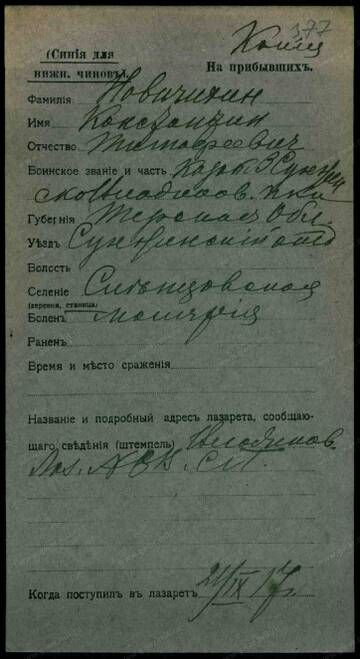 377
Копія
(Синія для
нижн. чиновъ).
На прибывшихъ.
Фамилія Новичихин
Имя Константин
Отчество Тимофеевич
Воинское званіе и часть Казак 3 Сунжен
ско Владикав. п.
Губернія Терская Обл.
Уѣздъ Сунженский отд
Волость
Селеніе Слепцовская
(деревня, станица)
Боленъ малярія
Раненъ
Время и мѣсто сраженія
Названіе и подробный адресъ лазарета, сообщаю-
щаго свѣдѣнія (штемпель) Владикав.
Когда поступилъ въ лазаретъ 21/IX 17 г.